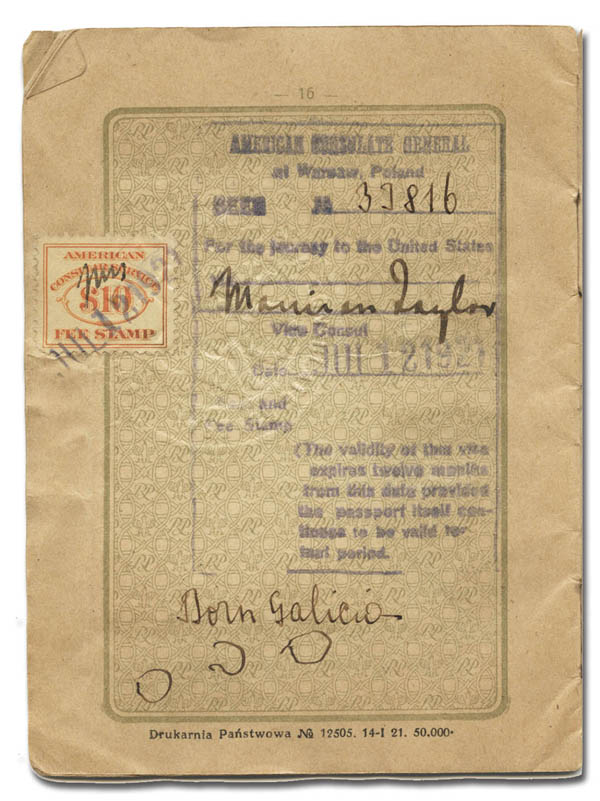 — 16 —
AMERICAN CONSULATE GENERAL
at Warsaw, Poland
SEEN № 39816
For the journey to the United States
Taylor
Vice Consul
Date JUL 12 1921
and
Fee Stamp
(The validity of this visa
expires twelve months
from this date provided
the passport itself con-
tinues to be valid for
that period.
AMERICAN
CONSULAR SERVICE
$10
FEE STAMP
JUL 12 192
Born Galicia
Drukarnia Państwowa № 12505. 14-I 21. 50.000•